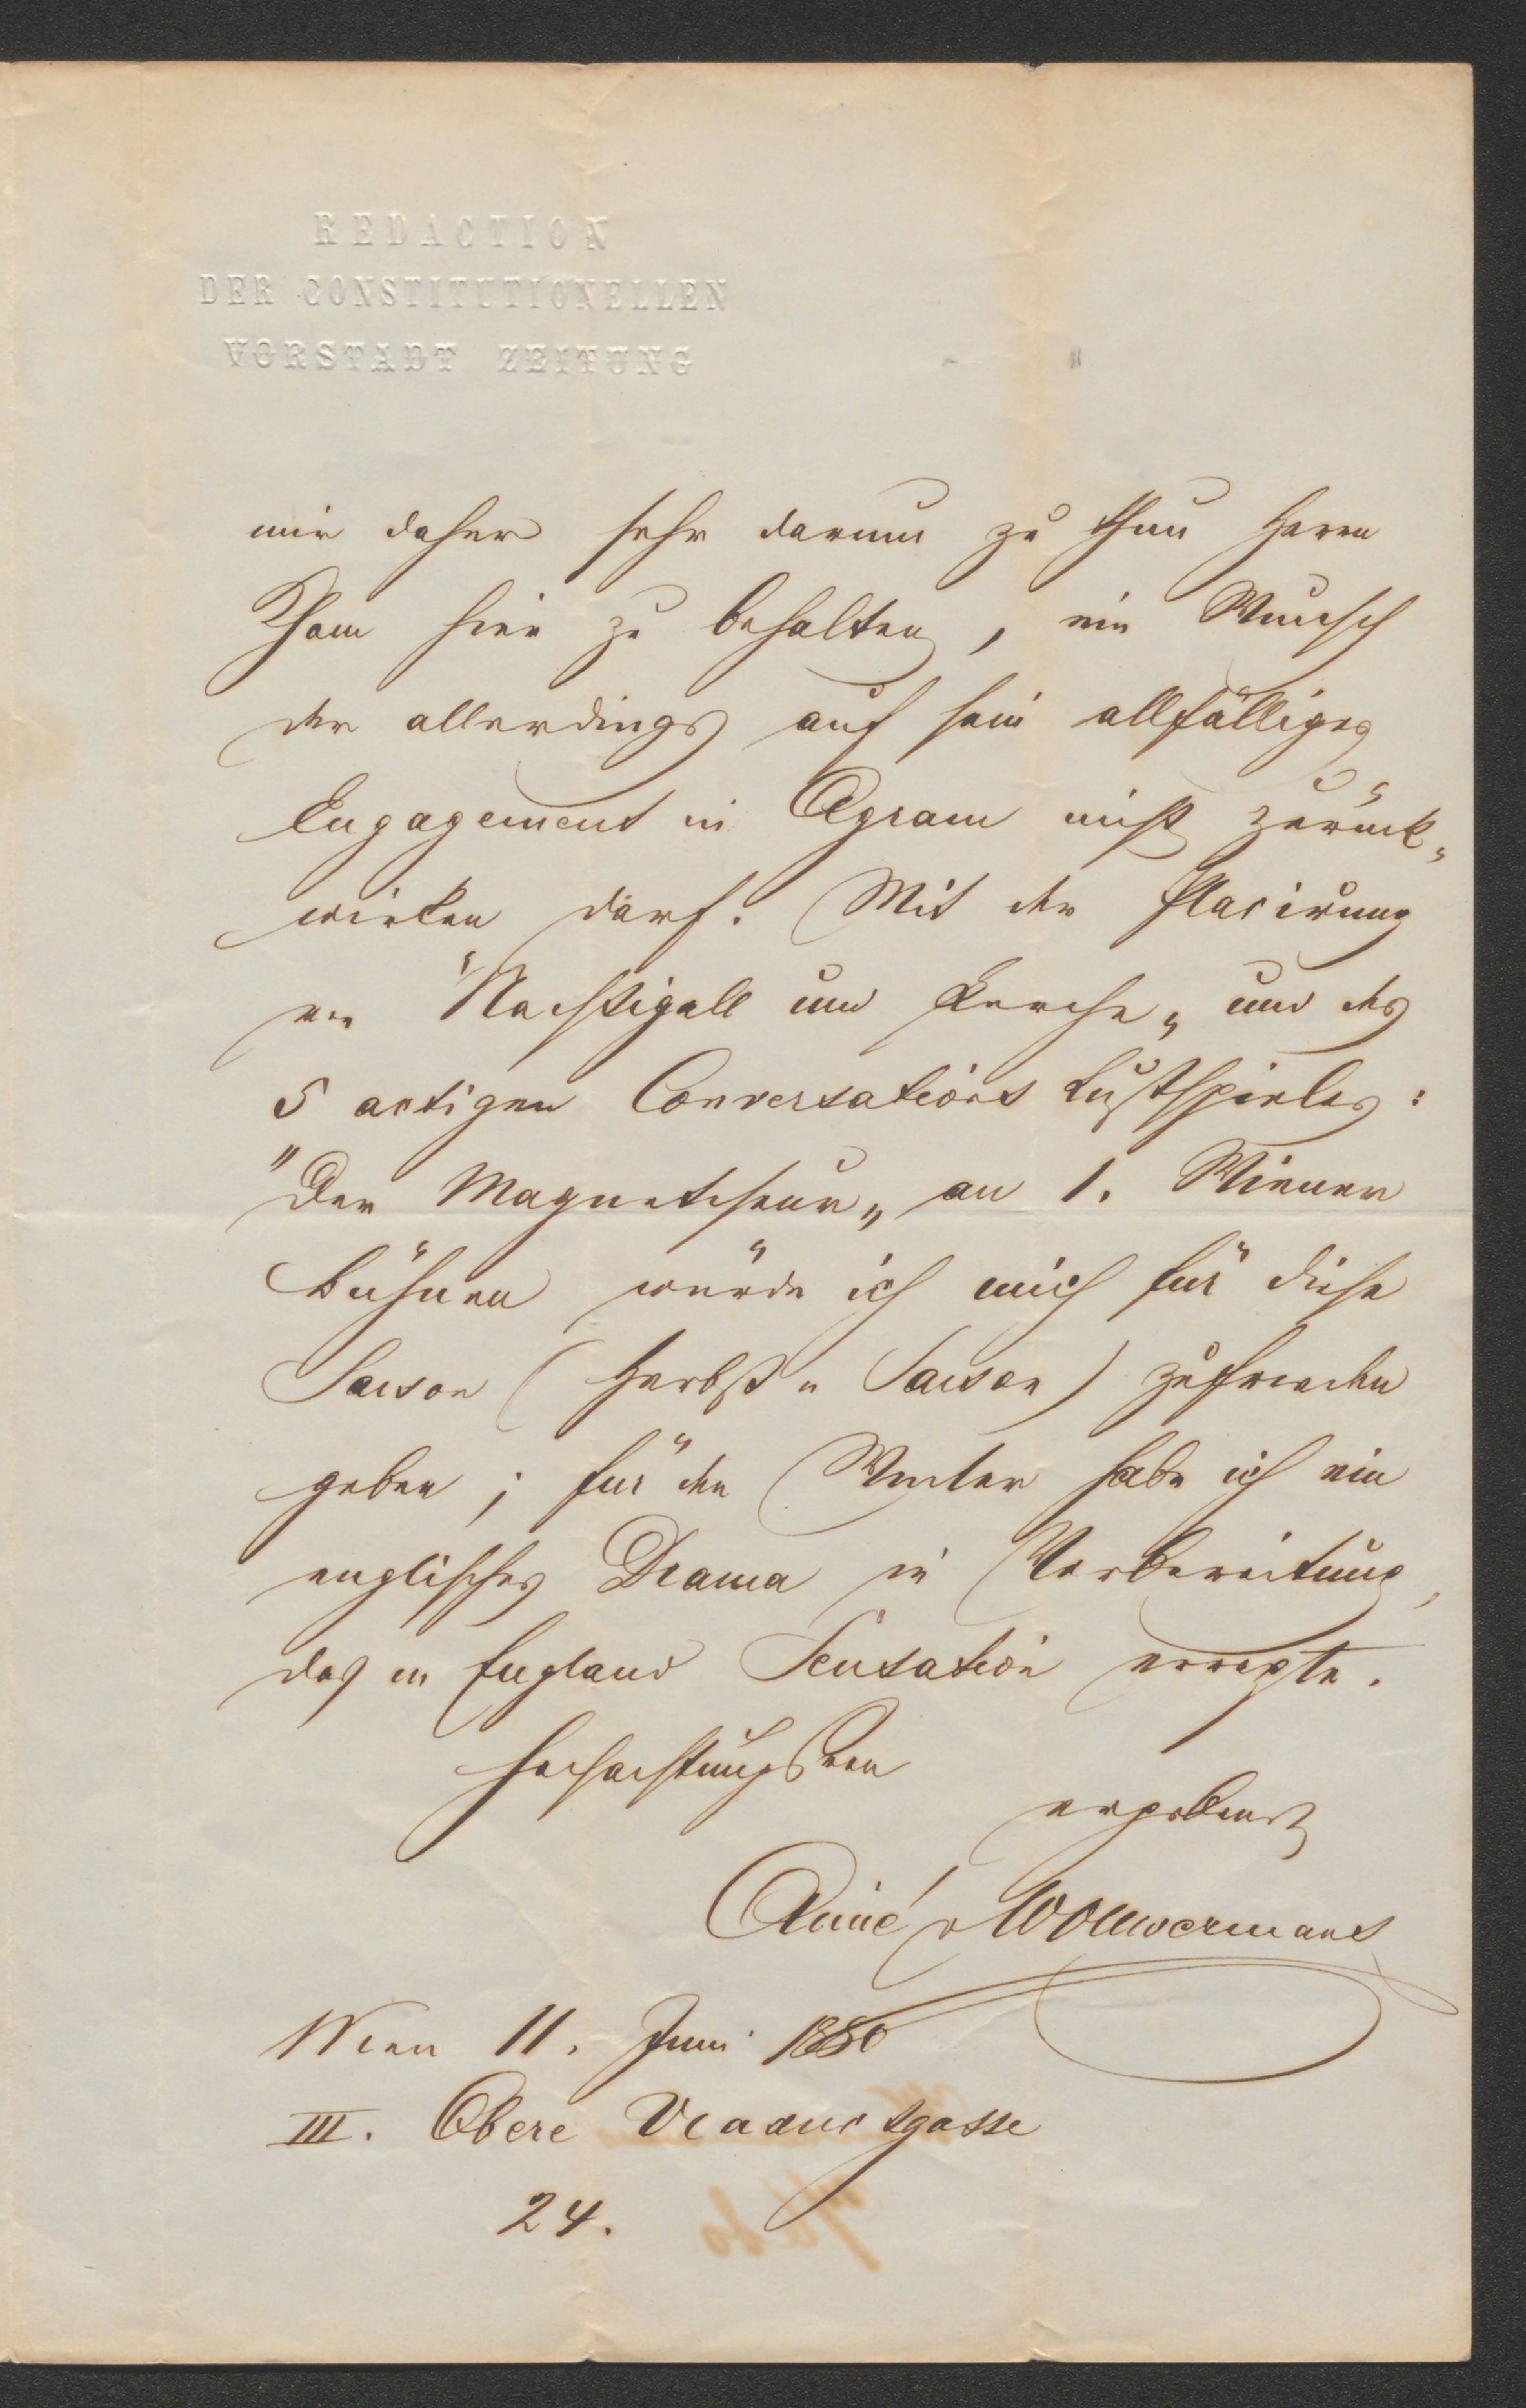 REDACTION
DER CONSTITUTIONELLEN
VORSTADT ZEITUNG
mir daher sehr darum zu thun Herrn
hier zu behalten, ein Wunsch
der allerdings auf sein allfälliges
Engagement in Agram nicht zurück„
wirken darf. Mit der Placirung
von "Nachtigall und Lerche„ und des
5 actigen Conversations Lustspieles:
"Der Magnetiseur„ an 1. Wiener
Bühnen würde ich mich für diese
Saison (Herbst„ Saison) zufrieden
geben; für den Winter habe ich ein
englisches Drama in Vorbereitung,
das in England Sensation erregte.
Hochachtungsvoll
ergebenst
Aimé v Wouwermans
Wien 11. Juni 1880
III. Obere Viaductgasse
24.